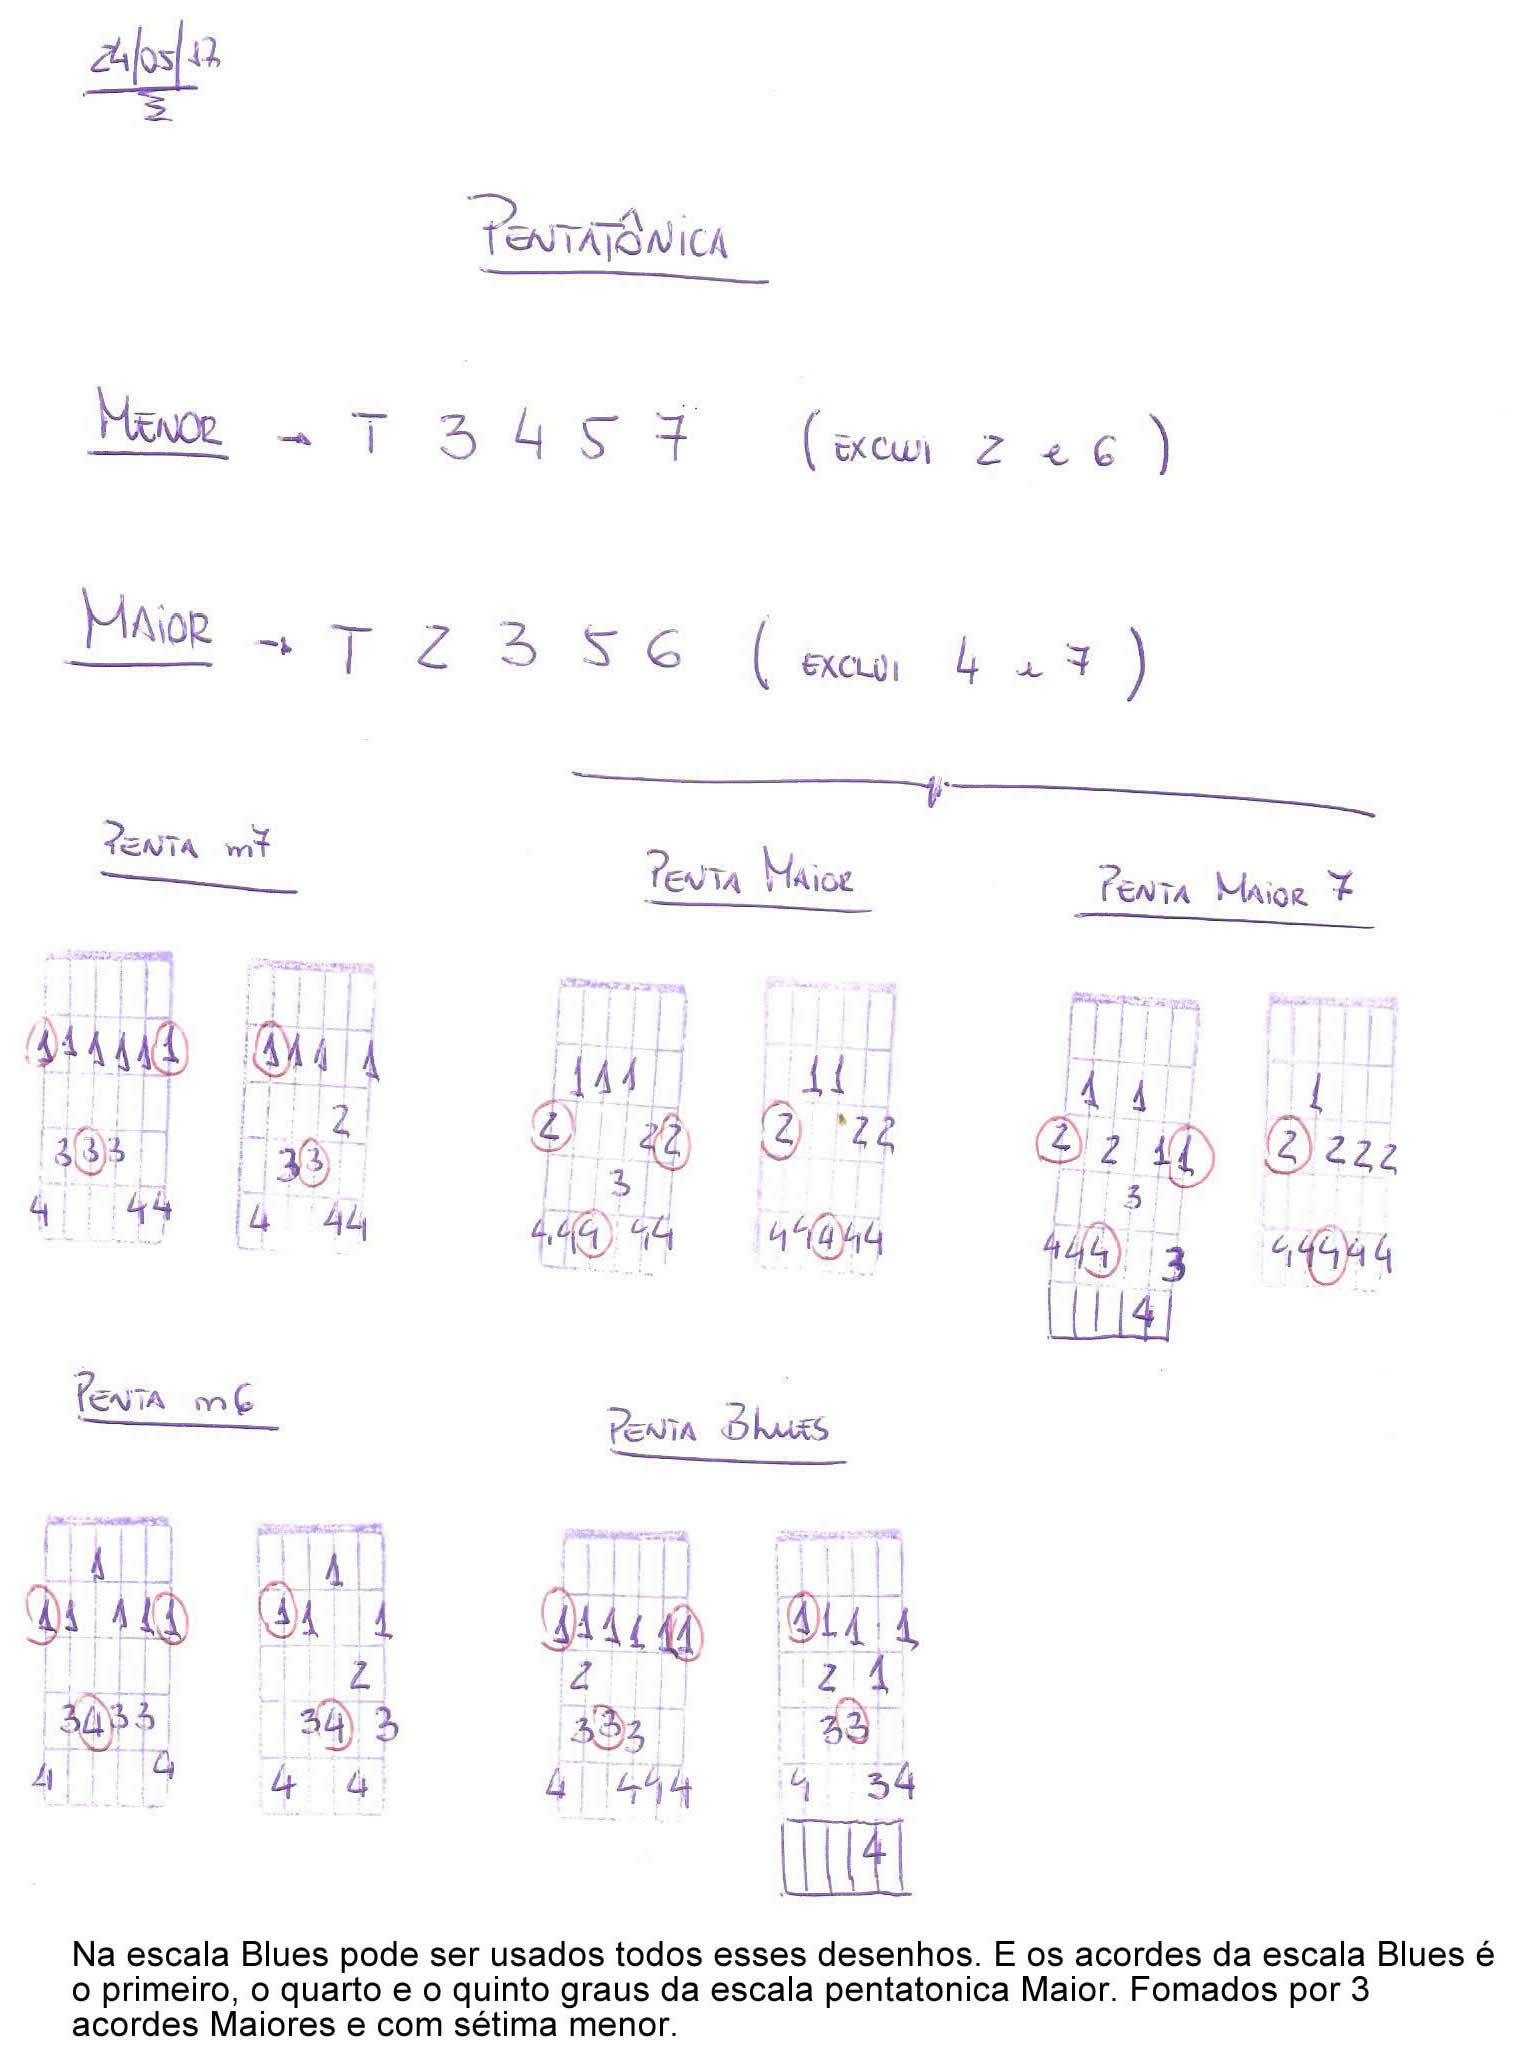 24/05/17
PENTATÔNICA
MENOR → T 3 4 5 7 (EXCLUI 2 e 6)
MAIOR → T 2 3 5 6 (EXCLUI 4 e 7)
PENTA m7
PENTA MAIOR
PENTA MAIOR 7
1 1 1 1 1 1
3 3 3
4 4 4
1 1 1 1
2
3 3
4 4 4
1 1 1
2 2 2
3
4 4 4 4 4
1 1
2 2 2
4 4 4 4 4
1 1
2 2 1 1
3
4 4 4 3
4
1
2 2 2 2
4 4 4 4 4
PENTA m6
PENTA BLUES
1
1 1 1 1 1
3 4 3 3
4 4
1
1 1 1
2
3 4 3
4 4
1 1 1 1 1 1
2
3 3 3
4 4 4 4
1 1 1 1
2 1
3 3
4 3 4
4
Na escala Blues pode ser usados todos esses desenhos. E os acordes da escala Blues é
o primeiro, o quarto e o quinto graus da escala pentatonica Maior. Fomados por 3
acordes Maiores e com sétima menor.